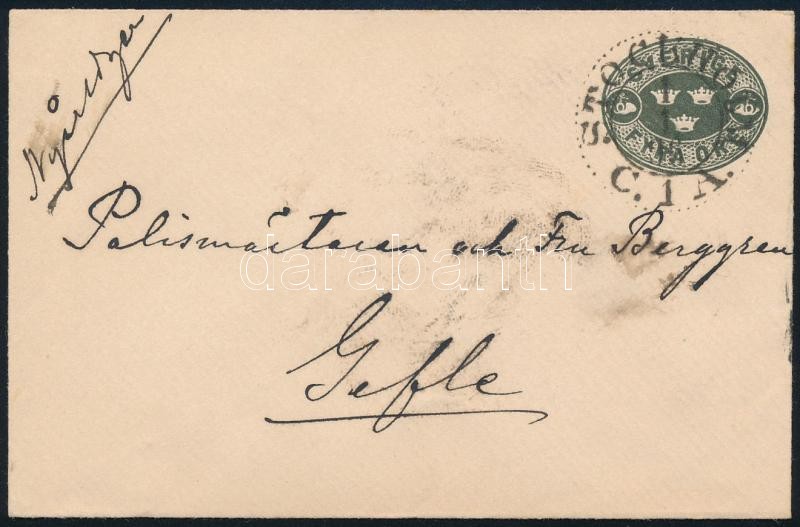 STOCKHOLM
C. 1 A.
FYRA ÖRE
Polismästaren och Fru Berggren
darabanth
Gefle